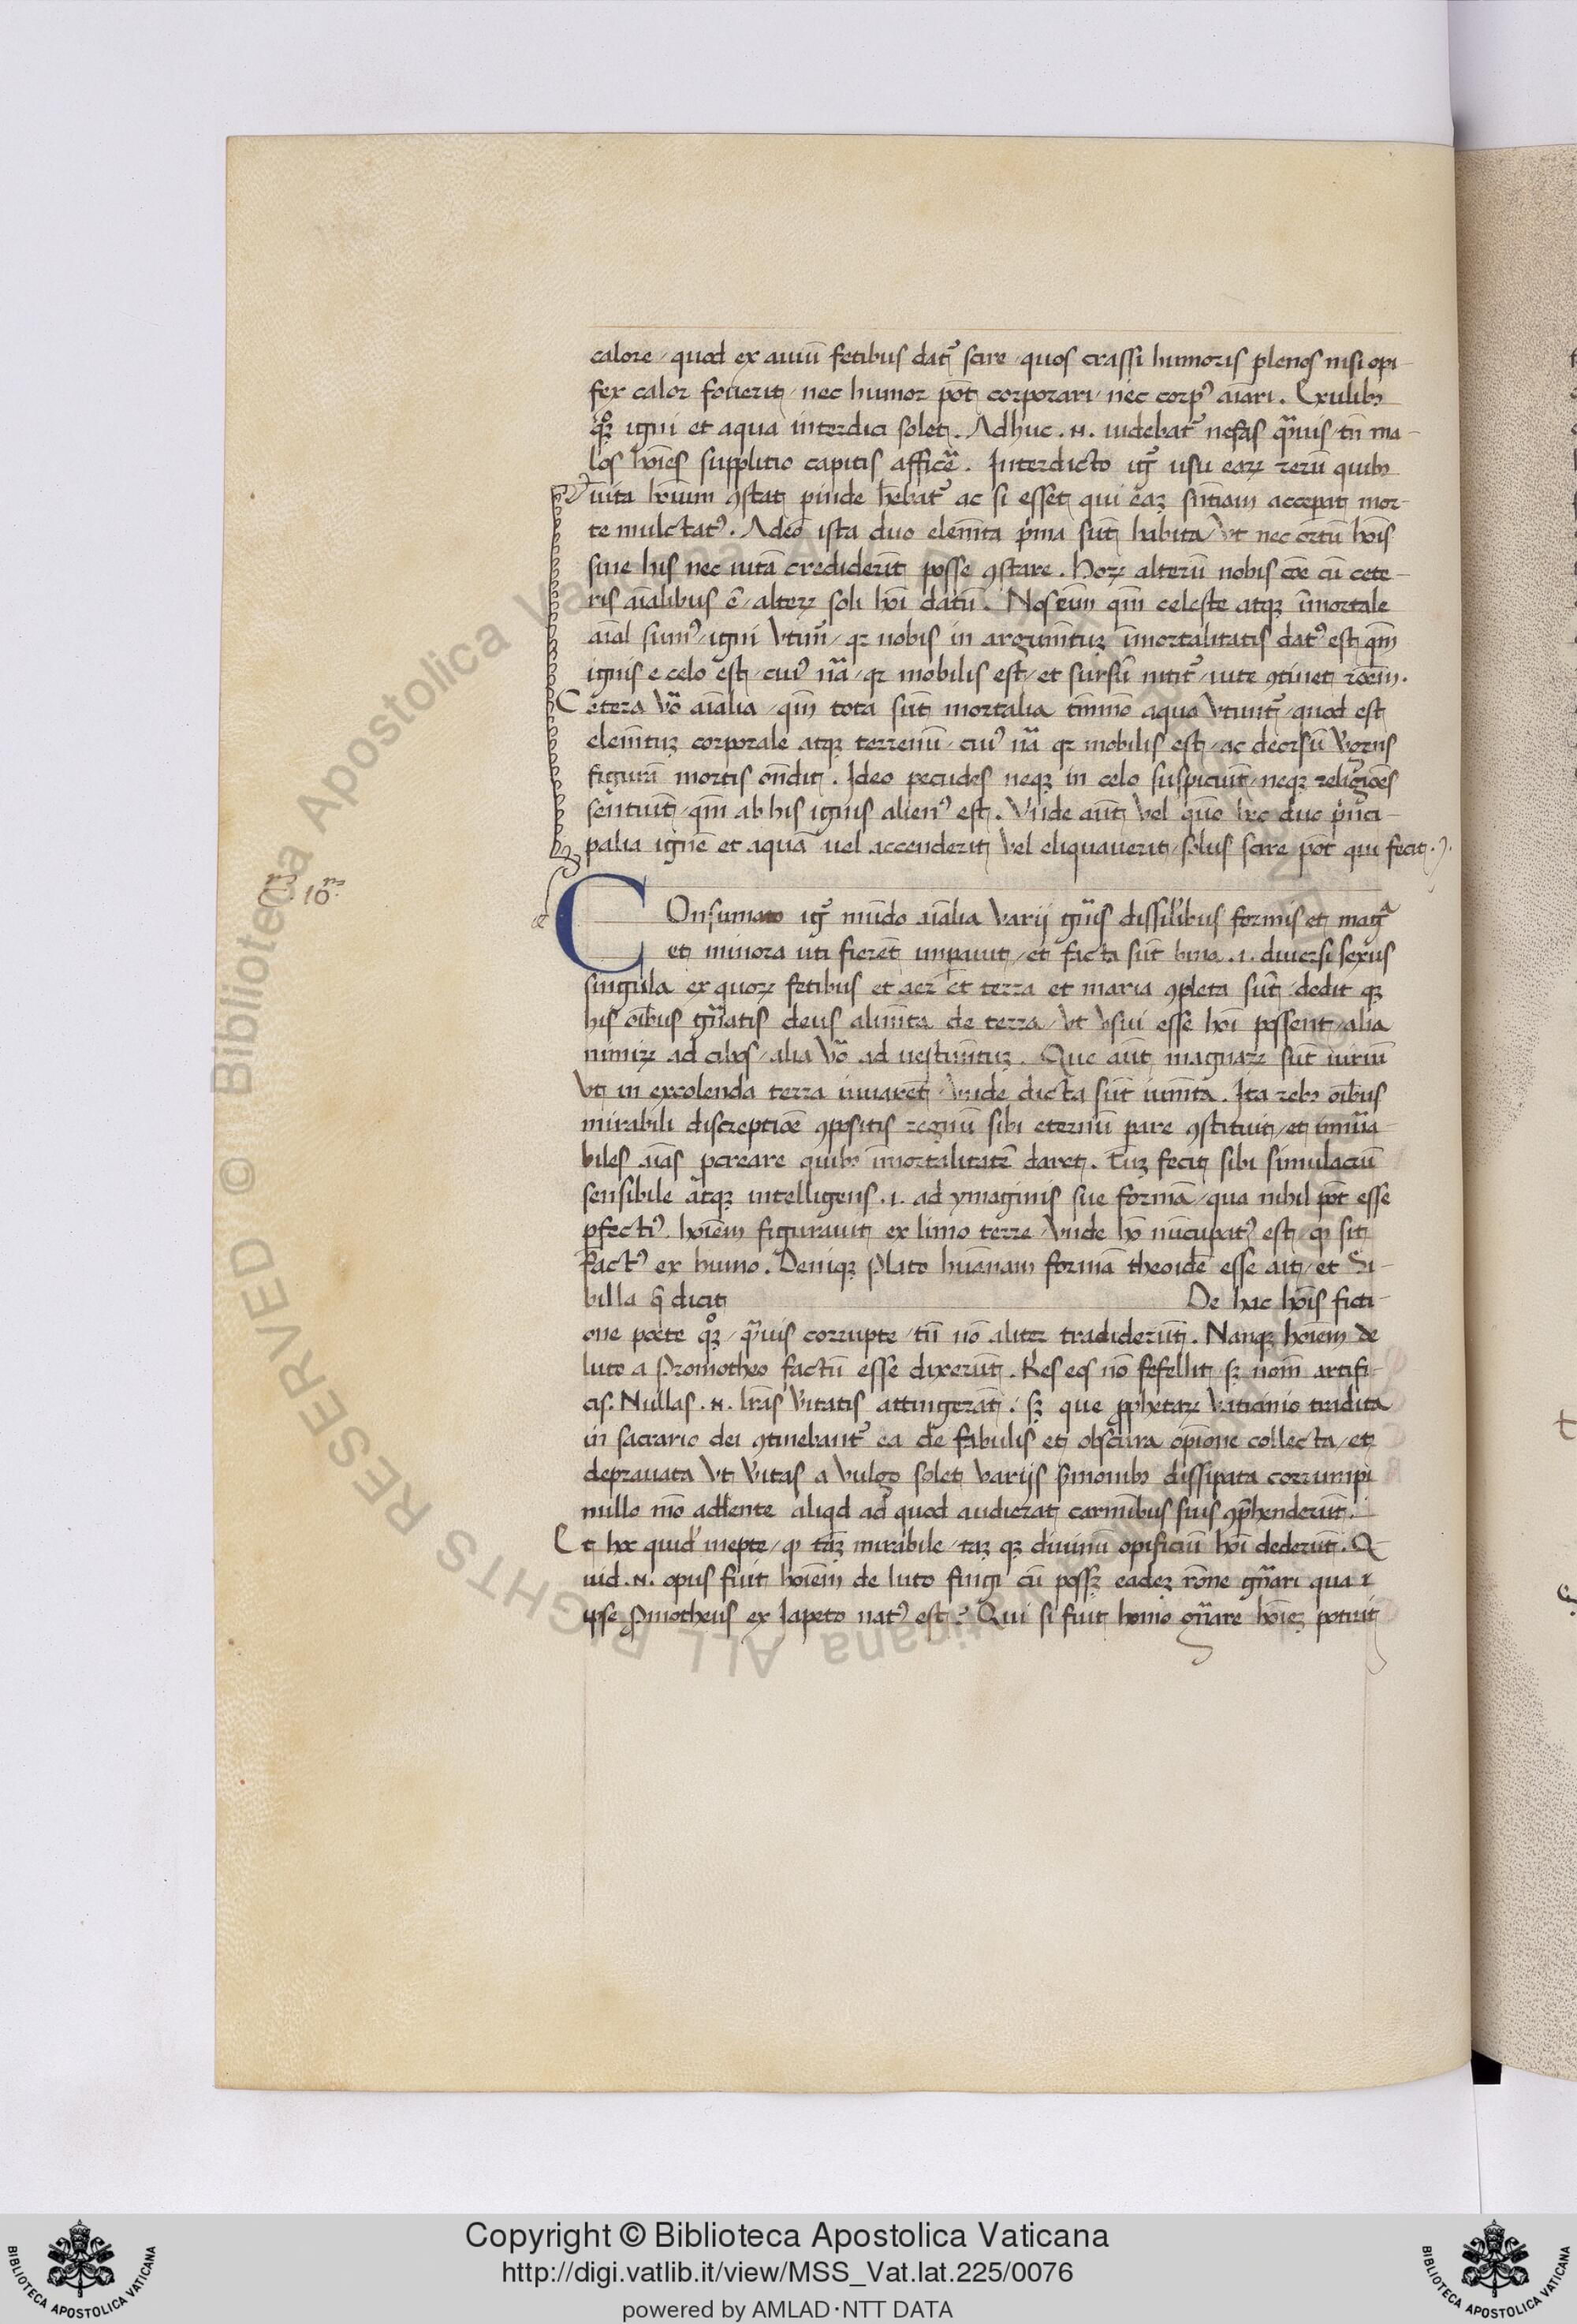 calore / quod ex auiū fetibus dat᷑ scire / quos crassi humoris plenos nisi opi-
fex calor fouerit / nec humor pōt corporari / nec corpꝰ aīari. Exulibꝫ
qͦꝫ igni et aqua interdici solet. Adhuc .n. uidebat᷑ nefas qͣuis / tn̄ ma-
los hoīes supplitio capitis afficē. Interdicto igͥ usu eaꝝ rerū quibꝫ
uita hoīum ꝯstat pinde hēbat᷑ ac si esset qui eaꝫ sn̄tiam accepat mor-
te mulctatꝰ. Adeo ista duo elemn̄ta pͥma sūt habita / Vt nec ortū hoīs
sine his nec uitā crediderīt posse ꝯstare. Hoꝝ alterū nobis cōe cū cete-
ris aīalibus ē / alteꝝ soli hoī datū. Nos eīm qm̄ celeste atqꝫ īmortale
aīal sumꝰ / igni Vtim̄ / qꝫ nobis in argumn̄tuꝫ īmortalitatis datꝰ est qm̄
ignis e celo est / cuiꝰ nā / qꝫ mobilis est / et sursū nitit᷑ / uite ꝯtinet rōem.
Cetera Vͦo aīalia / qm̄ tota sūt mortalia tm̄mō aqua Vtunt᷑ / quod est
elemn̄tuꝫ corporale atqꝫ terrenū / cuiꝰ nā qꝫ mobilis est / ac deorsū Vergēs
figurā mortis on̄dit. Ideo pecudes neqꝫ in celo suspiciūt / neqꝫ religiōes
sentiūt / qm̄ ab his ignis alienꝰ est. Vnde aūt Vel quō hec duo pͥnci-
palia ignē et aquā uel accenderit Vel eliquauerit / solus scire pōt qui fecit.
10
COnsumato igͥ mūdo aīalia Varij gn̄is dissilībus formis et magͣ
et minora uti fierēt impauit / et facta sūt bina .i. diuersi sexus
singula ex quoꝝ fetibus et aer et terra et maria ꝯpleta sūt / dedit qꝫ
his oībus gn̄atis deus alimn̄ta de terra / Vt Vsui esse hoī possent / alia
nimiꝝ ad cibos / alia Vͦo ad uestimn̄tuꝫ. Que aūt magnaꝝ sūt uiriū
Vt in excolenda terra iuuarēt / Vnde dicta sūt iumn̄ta. Ita rebꝫ oībus
mirabili discreptiōe ꝯpositis regnū sibi eternū pare ꝯstituit / et innūa-
biles aīas pcreare quibꝫ īmortalitatē daret. Tūꝫ fecit sibi simulacrū
sensibile atqꝫ intelligens .i. ad ymaginis sue formā / qua nihil pōt esse
pfectiꝰ. hoīem figurauit ex limo terre / Vnde hō nūcupatꝰ est / ꝙ sit
factꝰ ex humo. Deniqꝫ Plato humanam formā theoidē esse ait / et Si-
billa q̄ dicit De hac hoīs ficti-
one poete qͦꝫ / qͣuis corrupte / tn̄ nō aliter tradiderūt. Nanqꝫ hoīem de
luto a Promotheo factū esse dixerūt. Res eos nō fefellit sꝫ nom̄ artifi-
cis. Nullas .n. lrās Vͥtatis attingerāt. sꝫ que ꝓphetaꝝ Vaticinio tradita
in sacrario dei ꝯtinebant᷑ ea de fabulis et obscura opīone collecta / et
deprauata Vt Vͥtas a Vulgo solet Varijs sͥmonibꝫ dissipata corrumpi
nullo mō adhēnte aliqd ad quod audierāt carminibus suis ꝯphenderūt.
Et hoc quid inepte / ꝙ tāꝫ mirabile / taꝫ qꝫ diuinū opificiū hoī dederūt. Q
uid .n. opus fuit hoīem de luto fingi cū possꝫ eadeꝫ rōne gn̄ari qua ⁊
ipse ꝓmotheus ex Iapeto natꝰ est? Qui si fuit homo gn̄are hoīeꝫ potuit
Copyright © Biblioteca Apostolica Vaticana
http://digi.vatlib.it/view/MSS_Vat.lat.225/0076
powered by AMLAD·NTT DATA